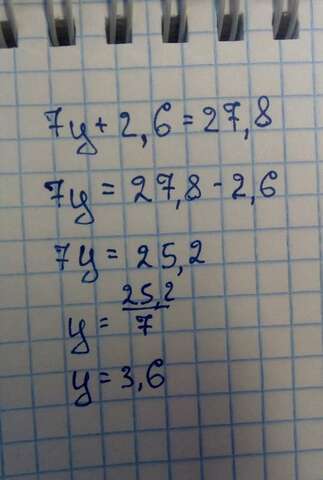 7y + 2,6 = 27,8
7y = 27,8 - 2,6
7y = 25,2
y = 25,2/7
y = 3,6